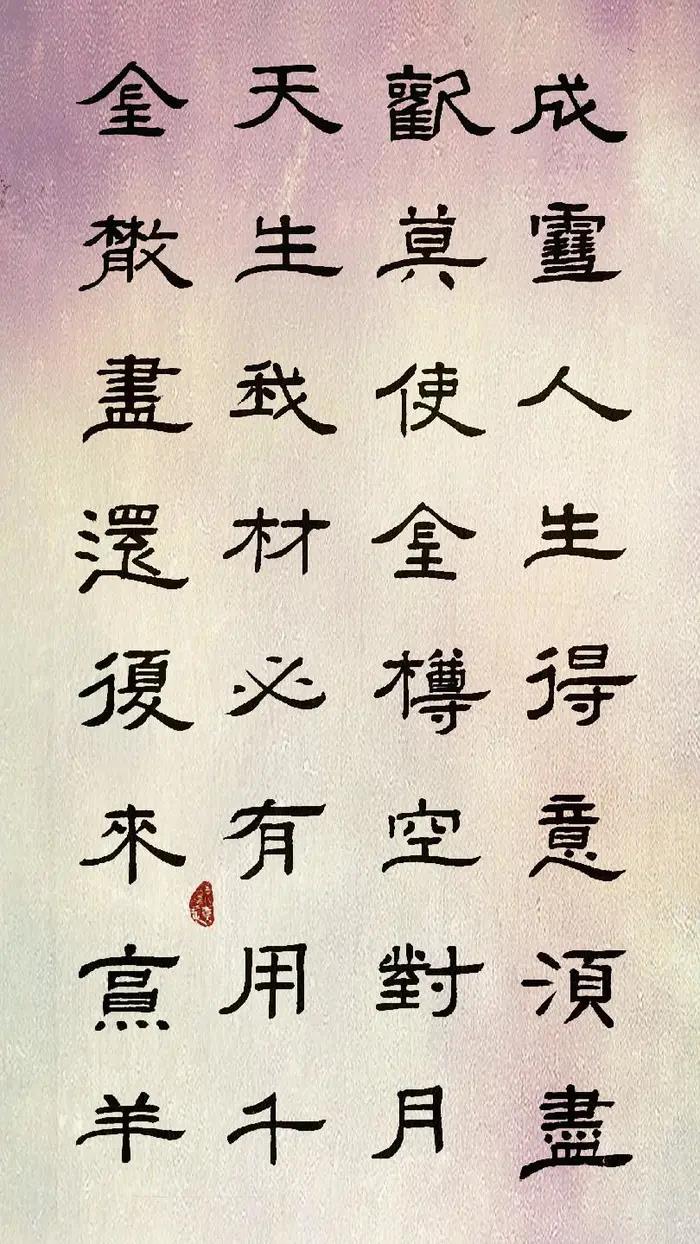 成雪人生得意須盡
歡莫使金樽空對月
天生我材必有用千
金散盡還復來烹羊